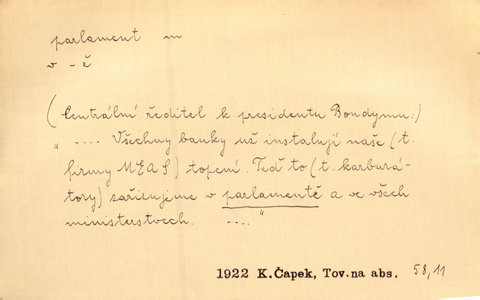 parlament m
v -ě
(Centrální ředitel k presidentu Bondymu:)
" .... Všechny banky už instalují naše (t.
firmy MEAS) topení. Teď to (t. karburá-
tory) zařizujeme v parlamentě a ve všech
ministerstvech. .... "
1922 K.Čapek, Tov.na abs. 58,11